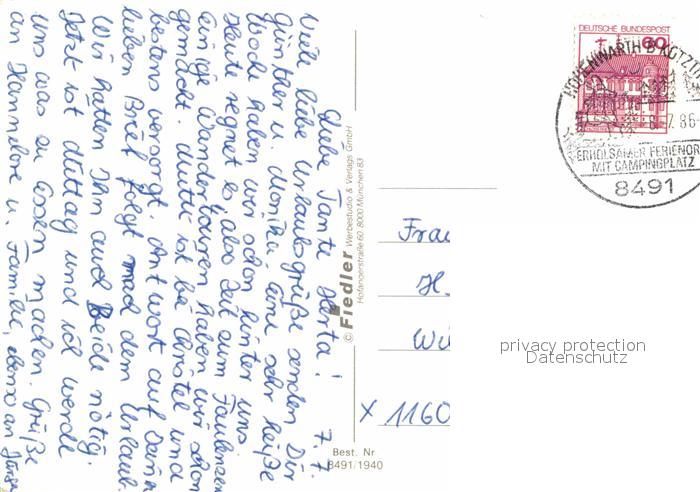 7.7.
Liebe Tante Herta!
Viele liebe Urlaubsgrüße senden Dir
Günther u. Monika. Eine sehr heiße
Woche haben wir schon hinter uns
Heute regnet es, also Zeit zum Faulenzen
einige Wandertouren haben wir schon
gemacht. Mutti ist bei Christel und
bestens versorgt. Antwort auf Dein
lieben Brief folgt nach dem Urlaub.
Wir hatten ihn auch Beide nötig.
Jetzt ist Mittag und ich werde
uns was zu Essen machen. Grüße
an Hannelore u. Familie, ebenso an
© Fiedler Werbestudio & Verlags GmbH
Hofangerstraße 60 8000 München 83
Best. Nr
8491/1940
DEUTSCHE BUNDESPOST
60
HOHENWARTH B KÖTZTI
8.7.86
ERHOLSAMER FERIENOR
MIT CAMPINGPLATZ
8491
Frau
H.
Wü
X 1160
privacy protection
Datenschutz